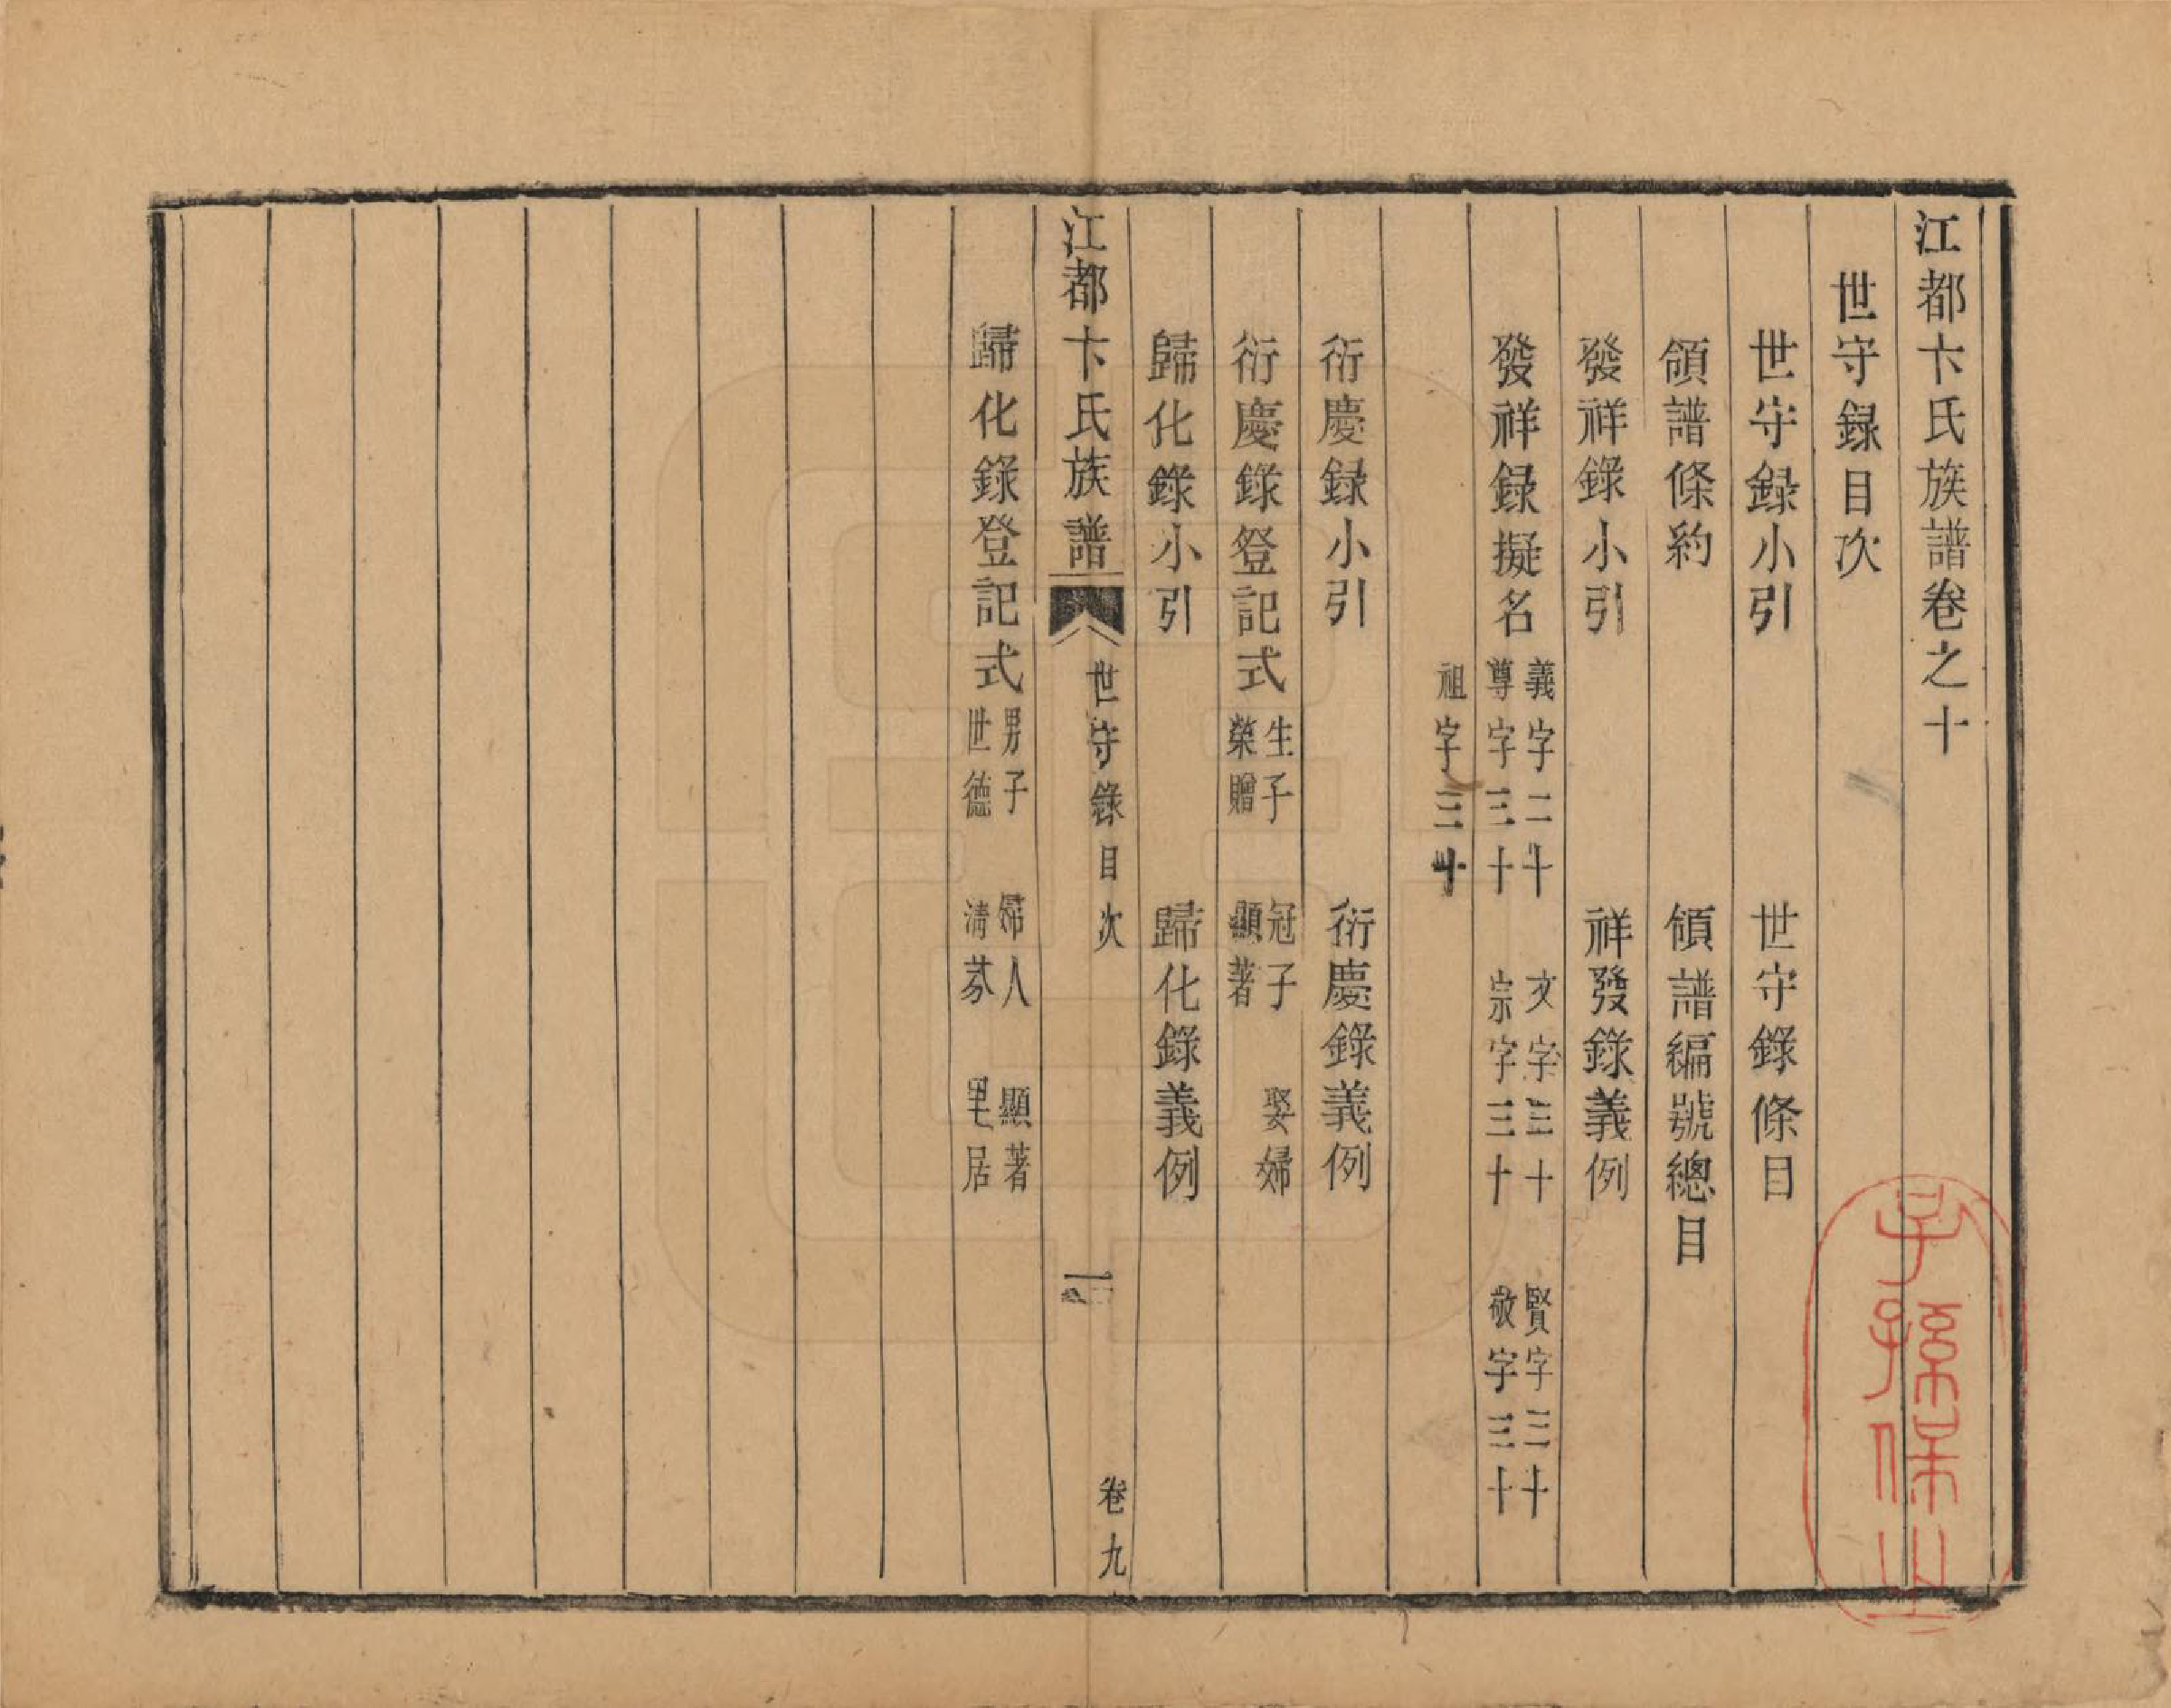 江都卞氏族譜卷之十
世守録目次
世守録小引　世守錄條目
領譜條約　領譜編號總目
發祥錄小引　祥發錄義例
發祥録擬名　義字二十　文字三十　賢字三十
尊字三十　宗字三十　敬字三十
祖字三十
衍慶録小引　衍慶錄義例
衍慶錄登記式　生子　冠子　娶婦
榮贈　顯著
歸化錄小引　歸化錄義例
江都卞氏族譜　世守錄目次　一　卷九
歸化錄登記式　男子　婦人　顯著
世德　淸芬　里居
子孫保之